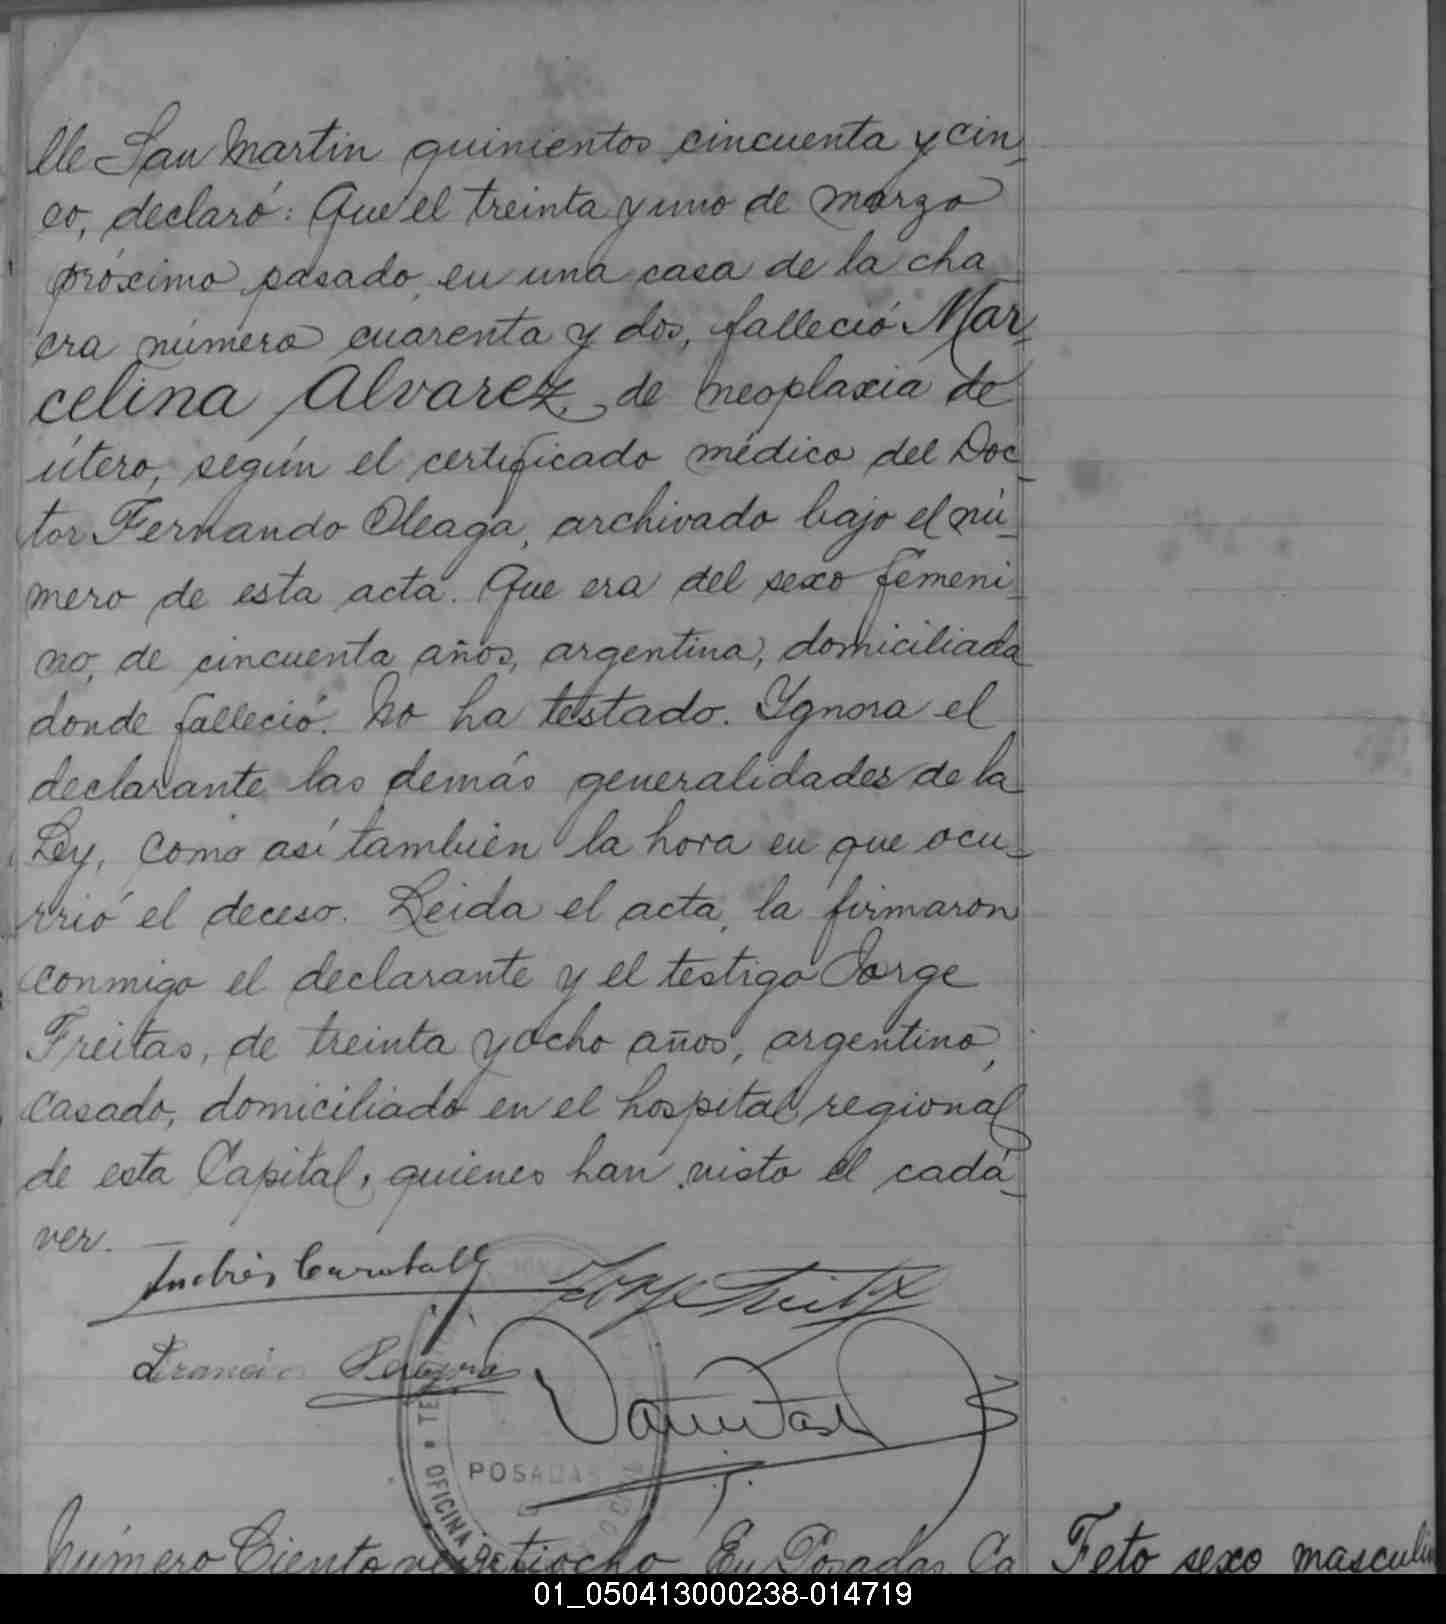 lle San Martin quinientos cincuenta y cin_
co, declaró: Que el treinta y uno de marzo
próximo pasado, en una casa de la cha_
cra número cuarenta y dos, falleció Mar_
celina Alvarez, de neoplaxia de
útero, según el certificado médico del Doc_
tor Fernando Oleaga, archivado bajo el nú_
mero de esta acta. Que era del sexo femeni_
no, de cincuenta años, argentina, domiciliada
donde falleció. No ha testado. Ygnora el
declarante las demás generalidades de la
Ley, como así también la hora en que ocu_
rrió el deceso. Leida el acta, la firmaron
conmigo el declarante y el testigo Jorge
Freitas, de treinta y ocho años, argentino,
casado, domiciliado en el hospital regional
de esta Capital, quienes han visto el cadá_
ver. —
Andrés
Jorge Freitas
Francisco Pereyra
POSADAS
OFICINA
Número Ciento veintiocho. En Posadas, Ca
Feto sexo masculin
01_050413000238-014719